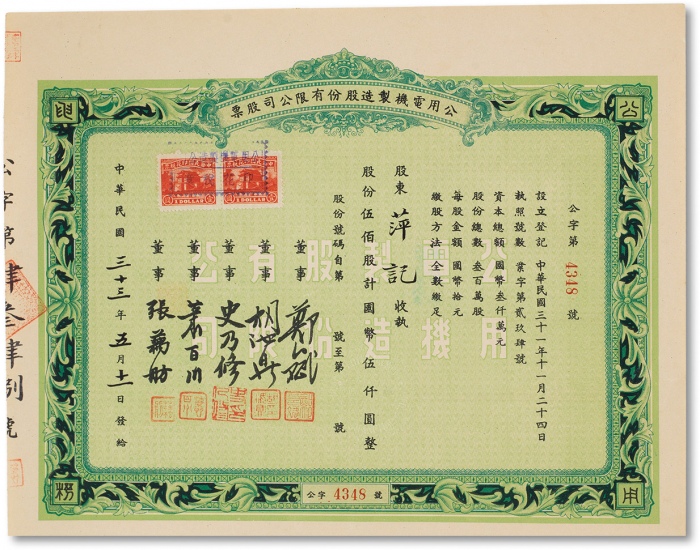 公用電機製造股份有限公司股票
公
用
電
務
公字第 4348 號
設立登記 中華民國三十一年十一月二十四日
執照號數 業字第貳玖肆號
資本總額 國幣叁仟萬元
股份總數 叁百萬股
每股金額 國幣拾元
繳股方法 全數繳足
股東 萍記 收執
股份伍佰股計國幣伍仟圓整
股份號碼自第 號至第 號
董事
董事 胡
董事 史乃修
董事
董事 張
中華民國三十三年五月十二日發給
1 DOLLAR
1 DOLLAR
公用電機製造股份有限公司
公字 4348 號
公字第肆叁肆捌號